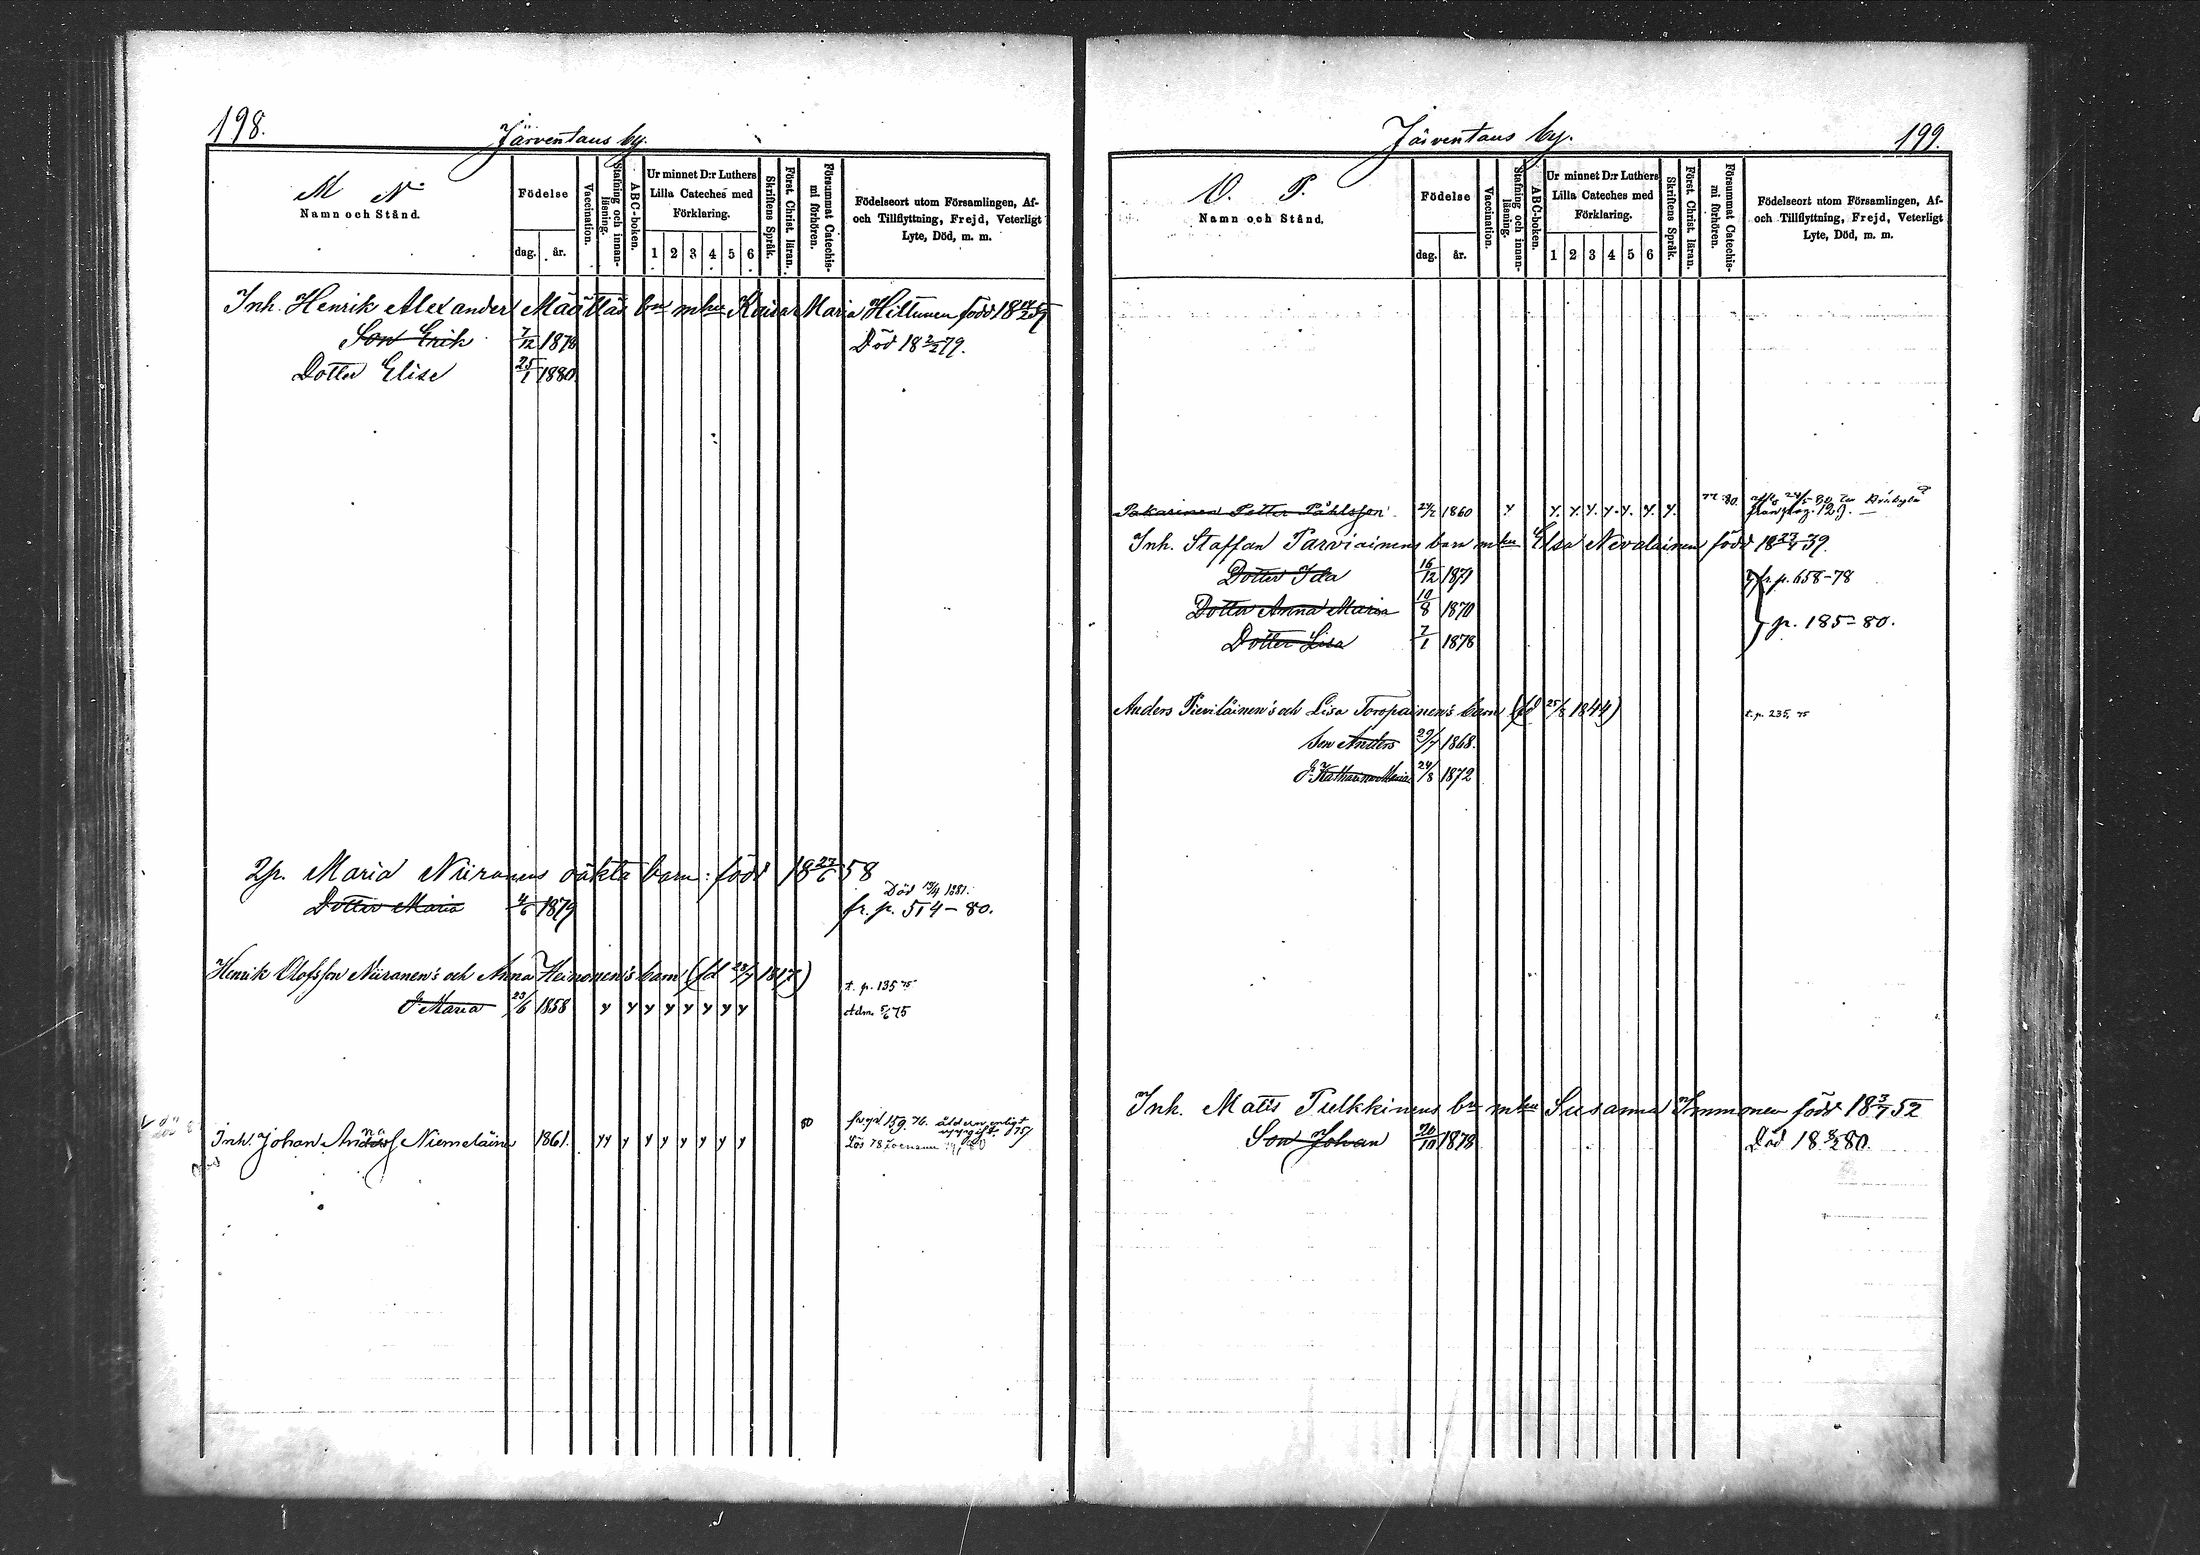 198.
Järventaus by.
M N
Namn och Stånd.
Födelse
dag. år.
Vaccination.
Stafning och innanläsning.
ABC-boken.
Ur minnet D:r Luthers
Lilla Cateches med
Förklaring.
1 2 3 4 5 6
Skriftens Språk.
Först. Christ. läran.
Försummat Catechismi förhören.
Födelseort utom Församlingen, Af-
och Tillflyttning, Frejd, Veterligt
Lyte, Död, m. m.
Inh. Henrik Alexander Määttäs bn m hu Kaisa Maria Hiltunen född
Son Erik 7/12 1878 Död 18 2/2 79.
Dotter Elise 25/1 1880
Maria Niiranens oäkta barn: född 18 23/6 58
Död 19/4 1881.
Dotter Maria 4/6 1879 fr. p. 514-80.
Henrik Olofsson Niiranen's och Anna Heinonen's barn (fd 23/7 1817)
t. p. 135 75
d. Maria 23/6 1858 y y y y y y y y Adm. 5/6 75
80 159. 76.
Inh. Johan Niemeläin 1861. y y y y y y y y y
199.
Järventaus by.
O. P.
Namn och Stånd.
Födelse
dag. år.
Vaccination.
Stafning och innanläsning.
ABC-boken.
Ur minnet D:r Luthers
Lilla Cateches med
Förklaring.
1 2 3 4 5 6
Skriftens Språk.
Först. Christ. läran.
Försummat Catechismi förhören.
Födelseort utom Församlingen, Af-
och Tillflyttning, Frejd, Veterligt
Lyte, Död, m. m.
Pakarinen Petter Påhlsson 24/2 1860 y y. y. y. y. y. y. y. 80.
Inh. Staffan Parviainens barn m hu Elsa Nevalainen född 18 23/8 39.
Dotter Ida 16/12 1871 fr. p. 658-78
Dotter Anna Maria 10/8 1870
p. 185-80.
Dotter Lisa 7/1 1878
Anders Pieviläinen's och Lisa Toropainen's barn (fd 25/8 1844) t. p. 235, 75
Son Anders 29/7 1868.
d. Katharina Maria 24/8 1872
Inh. Matts Pulkkinens bn m hu Susanna Immonen född 18 3/7 52
Son Johan 20/10 1878 Död 18 8/2 80.